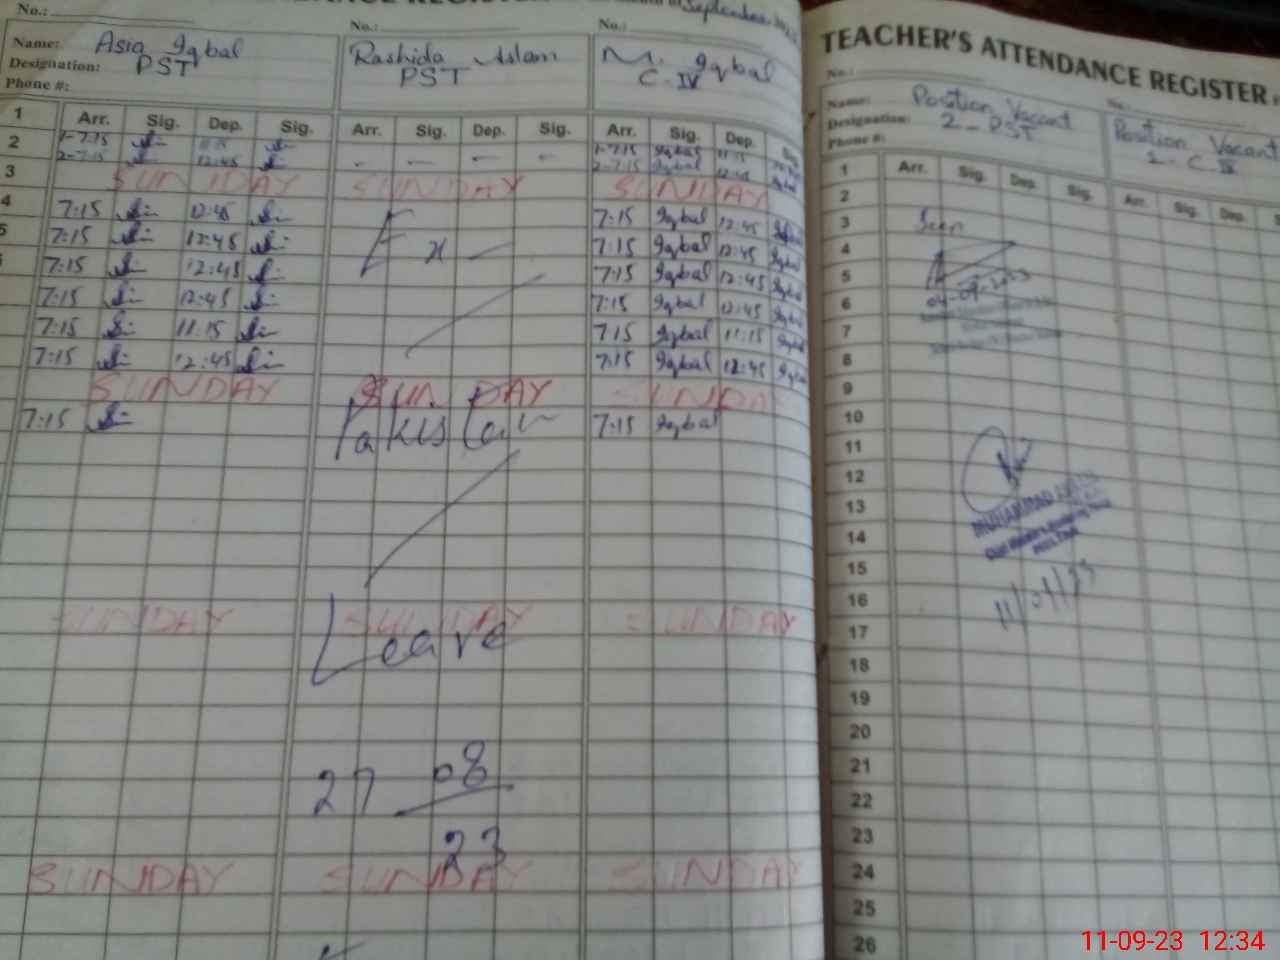 September
No.:
Name: Asia Iqbal
Designation: PST
Phone #:
No.:
Rashida Aslam
PST
No.:
M. Iqbal
C-IV
1 Arr. Sig. Dep. Sig. Arr. Sig. Dep. Sig. Arr. Sig. Dep.
2 1-7:15 11:15 - - - - 1-7:15 Iqbal 11:15
2-7:15 12:45 2-7:15 Iqbal 12:45 Iqbal
3 SUNDAY SUNDAY SUNDAY
4 7:15 12:45 7:15 Iqbal 12:45 Iqbal
5 7:15 12:45 Ex - 7:15 Iqbal 12:45 Iqbal
7:15 12:45 7:15 Iqbal 12:45 Iqbal
7:15 12:45 7:15 Iqbal 12:45 Iqbal
7:15 11:15 7:15 Iqbal 11:15 Iqbal
7:15 12:45 7:15 Iqbal 12:45 Iqbal
SUNDAY SUN DAY SUNDA
7:15 Pakistan 7:15 Iqbal
SUNDAY SUNDAY SUNDAY
Leave
27 08
23
SUNDAY SUNDAY SUNDAY
TEACHER'S ATTENDANCE REGISTER
No.:
Name: Position Vacant
Designation: 2-PST
Phone #:
No.:
Position Vacant
2-C IV
1 Arr. Sig. Dep. Sig. Arr. Sig. Dep.
2
3 Seen
4
5
04-09-2023
6
7
8
9
10
11
12
13 MUHAMMAD
14
15
16
11/09/23
17
18
19
20
21
22
23
24
25
26
11-09-23 12:34